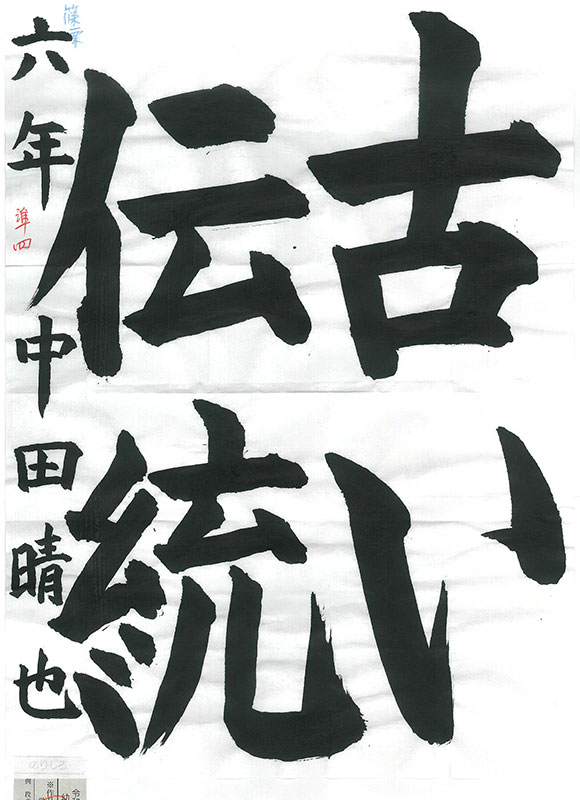 古い
伝統
六年 中田晴也
準四
篠栗
のりしろ